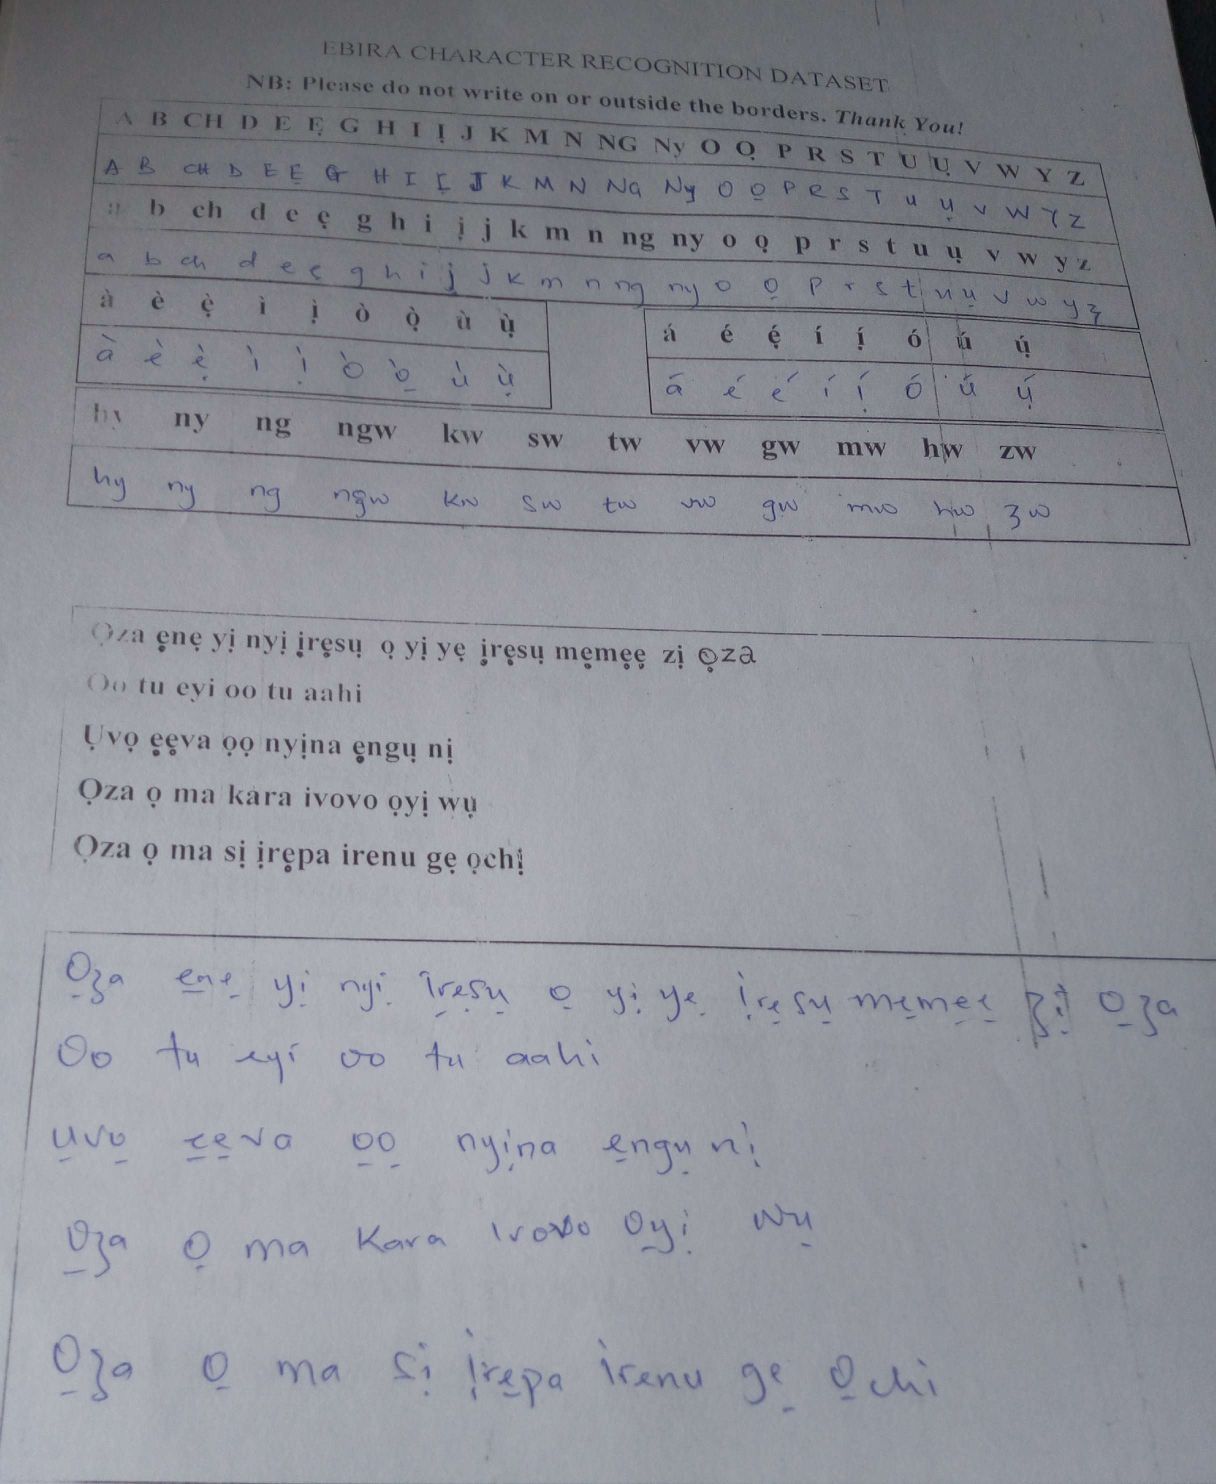 EBIRA CHARACTER RECOGNITION DATASET
NB: Please do not write on or outside the borders. Thank You!
A B CH D E Ẹ G H I Ị J K M N NG Ny O Ọ P R S T U Ụ V W Y Z
A B CH D E Ẹ G H I Ị J K M N Ng Ny O Ọ P R S T u ụ v W Y Z
a b ch d e ẹ g h i ị j k m n ng ny o ọ p r s t u ụ v w y z
a b ch d e ẹ g h i ị j k m n ng ny o ọ p r s t u ụ v w y z
à è ẹ̀ ì ị̀ ò ọ̀ ù ụ̀ á é ẹ́ í ị́ ó ú ụ́
à è ẹ̀ ì ị̀ ò ọ̀ ù ụ̀ á é ẹ́ í ị́ ó ú ụ́
hy ny ng ngw kw sw tw vw gw mw hw zw
hy ny ng ngw kw sw tw vw gw mw hw zw
Ọza ẹnẹ yị nyị ịrẹsụ ọ yị yẹ ịrẹsụ mẹmẹẹ zị ọza
Oo tu eyi oo tu aahi
Ụvọ ẹẹva ọọ nyịna ẹngụ nị
Ọza ọ ma kara ivovo ọyị wụ
Ọza ọ ma sị ịrẹpa irenu gẹ ọchị
Ọza ẹnẹ yị nyị ịrẹsụ ọ yị yẹ ịrẹsụ mẹmẹẹ zị ọza
Oo tu eyi oo tu aahi
ụvọ ẹẹva ọọ nyịna ẹngụ nị
Ọza ọ ma kara ivovo ọyị wụ
Ọza ọ ma sị ịrẹpa irenu gẹ ọchi